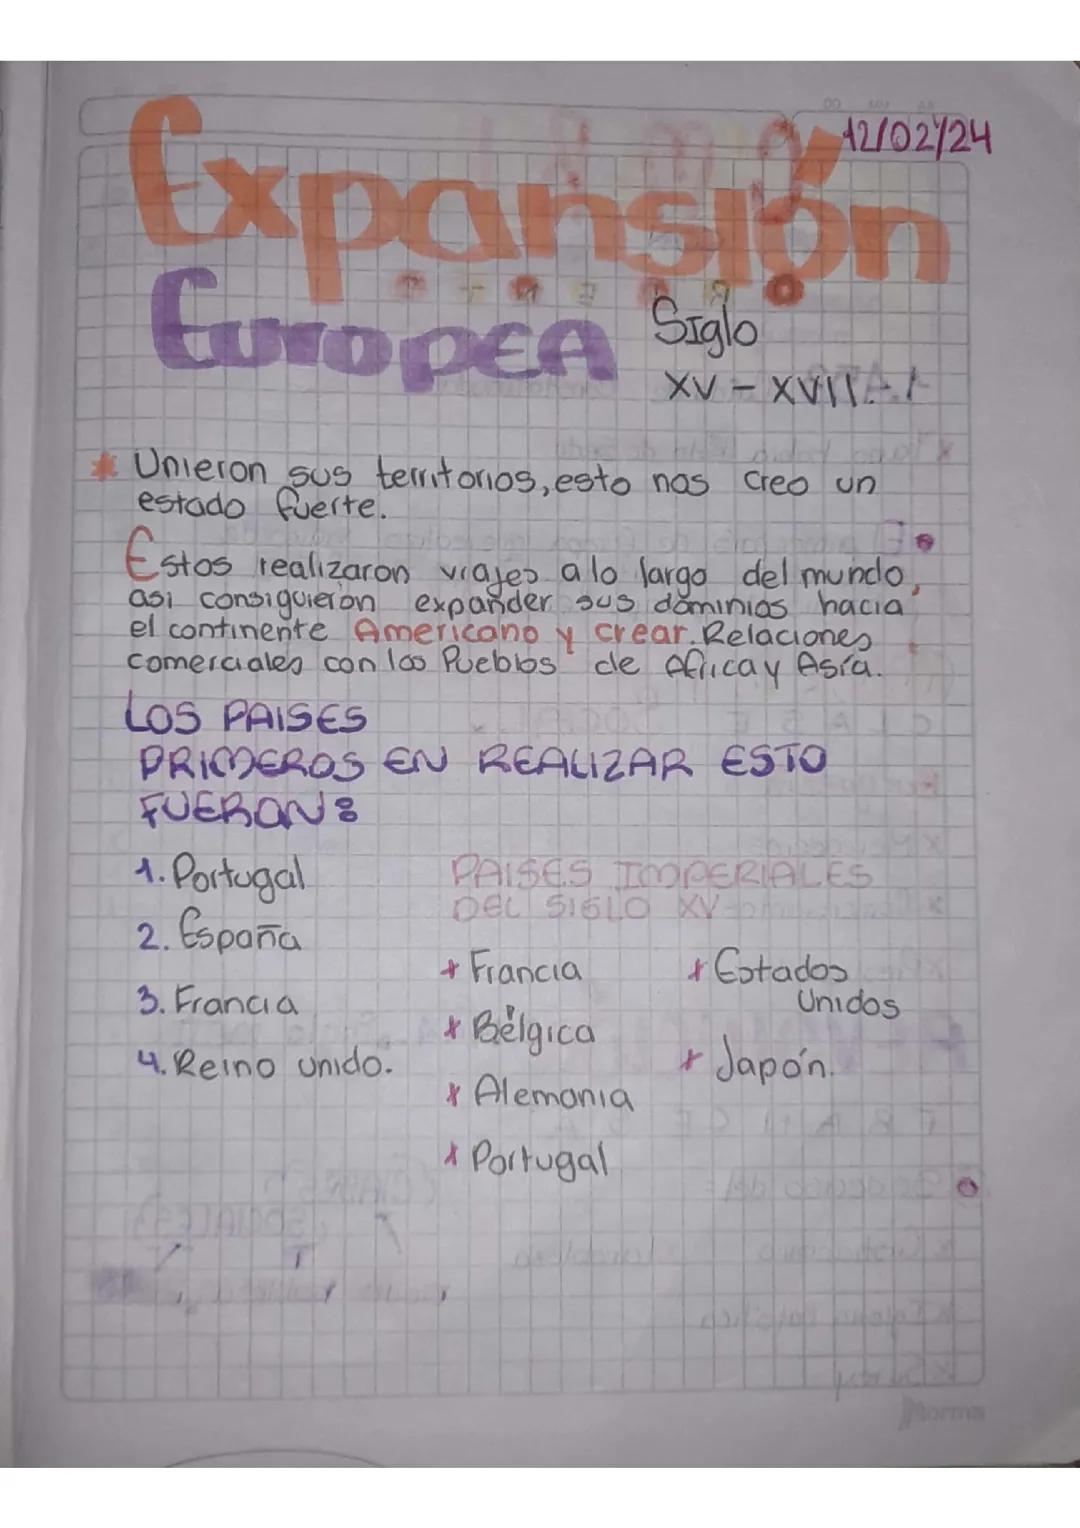 DD MM AA
12/02/24
Expansión
Europea
Siglo
XV - XVII.
* Unieron sus territorios, esto nos creo un
estado fuerte.
Estos realizaron viajes a lo largo del mundo,
asi consiguieron expander sus dominios hacia
el continente Americano y crear Relaciones
comerciales con los Pueblos de Africa y Asía.
LOS PAISES
PRIMEROS EN REALIZAR ESTO
FUERON:
1. Portugal
2. España
3. Francia
4. Reino unido.
PAISES IMPERIALES
DEL SIGLO XV
* Francia
* Bélgica
* Alemania
* Portugal
* Estados
Unidos
* Japón.
Norma